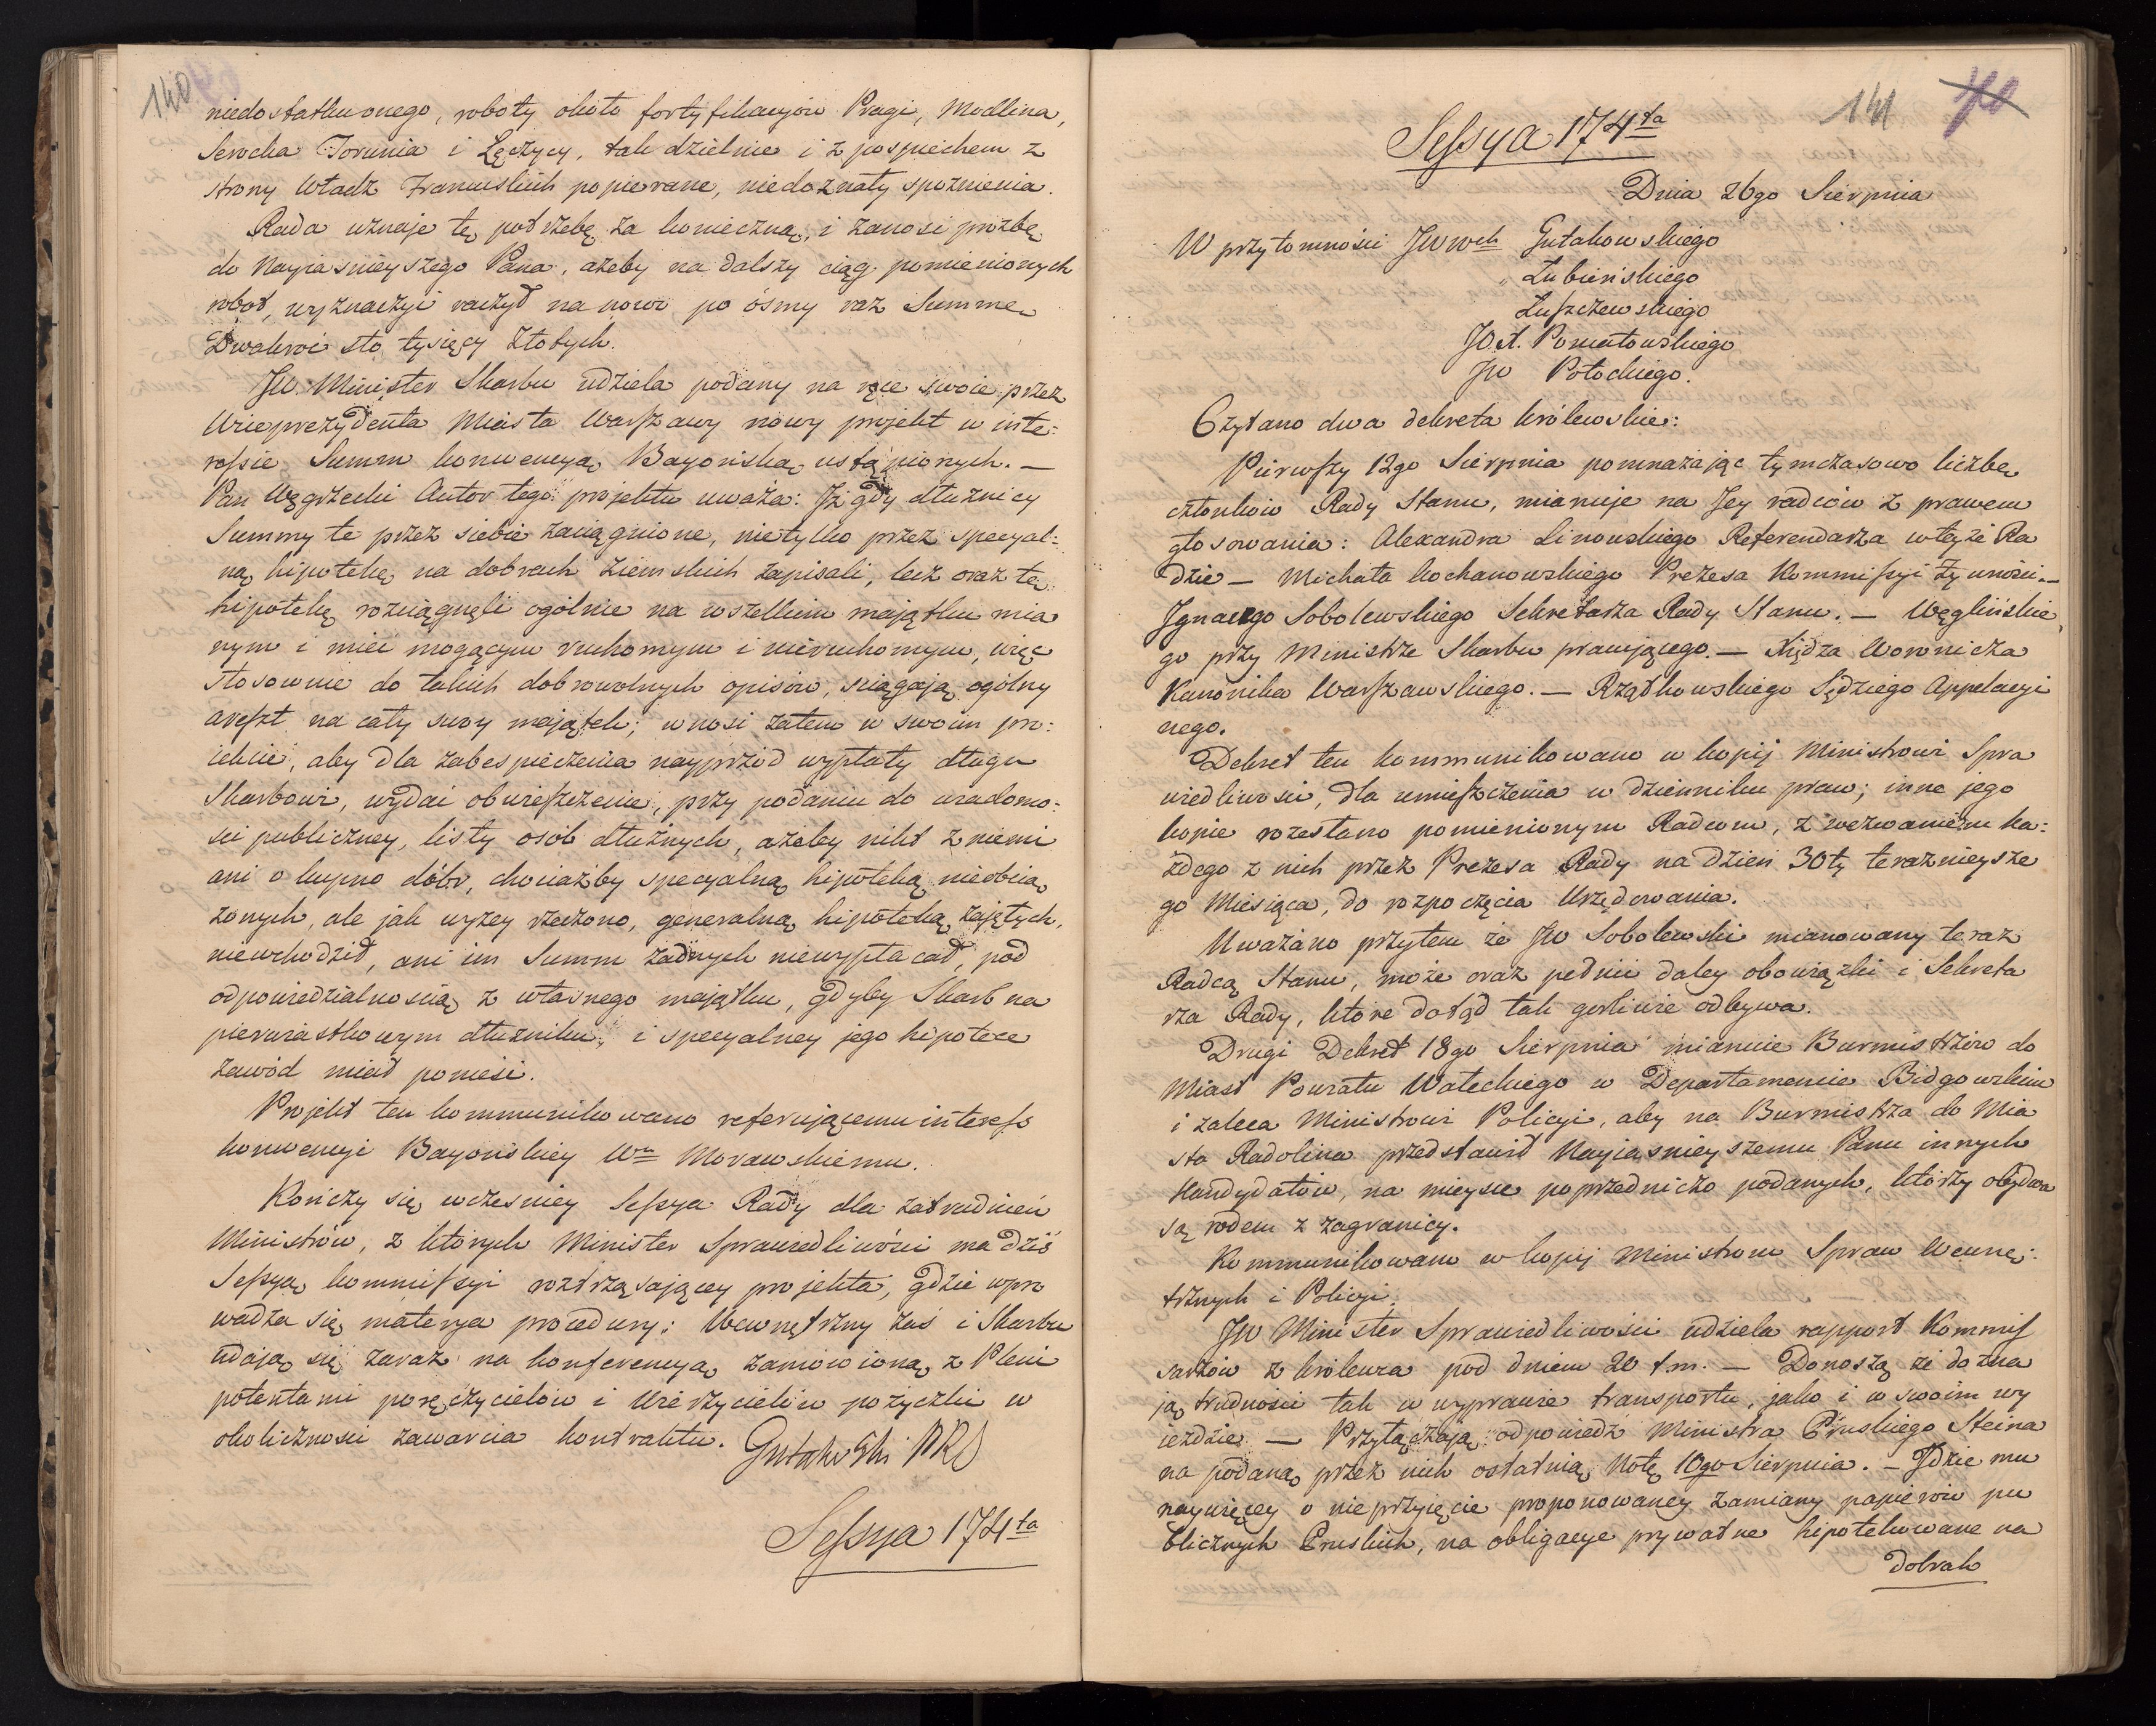 140
niedostatku onego, roboty około fortyfikacyów Pragi, Modlina,
Serocka Torunia i Łęczycy, tak dzielnie i z pospiechem z
strony Władz Francuskich popierane, niedoznały spoznienia.
Rada uznaje tę potrzebę za konieczną, i zanosi prozbę
do Nayiasnieyszego Pana, ażeby na dalszy ciąg pomienionych
robot, wyznaczyć raczył na nowo po ósmy raz Summę
Dwakroć sto tysięcy Złotych.
JW. Minister Skarbu udziela podany na ręce swoie przez
Wiceprezydenta Miasta Warszawy nowy projekt w inte:
ressie Summ konwencyą Bayońską ustąpionych. —
Pan Węgrzecki Autor tego projektu uważa: Jż gdy dłużnicy
Summy te przez siebie zaciągnione, nietylko przez specyal:
ną hipotekę na dobrach ziemskich zapisali, lecz oraz tę
hipotekę rozciągnęli ogólnie na wszelkim majątku mia
nym i mieć mogącym ruchomym i nieruchomym, więc
stosownie do takich dobrowolnych opisów, sciągają ogólny
areszt na cały swoy majątek; wnosi zatem w swoim pro:
iekcie, aby dla zabespieczenia nayprzód wypłaty długu
Skarbowi, wydać obwieszczenie, przy podaniu do wiadomo:
sci publiczney, listy osób dłużnych, ażeby nikt z niemi
ani o kupno dóbr, chociażby specyalną hipoteką nieobcią
żonych, ale jak wyżey rzeczono, generalną hipoteką zajętych,
niewchodził, ani im Summ żadnych niewypłacał, pod
odpowiedzialnoscią z własnego majątku, gdyby Skarb na
pierwiastkowym dłużniku, i specyalney jego hipotece
zawód miał ponieść.
Projekt ten kommunikowano referującemu interess
konwencyi Bayońskiey Wu Morawskiemu.
Kończy się wczesniey Sessya Rady dla zatrudnień
Ministrów, z których Minister Sprawiedliwości ma dziś
Sessyą kommissyi roztrząsającey projekta, gdzie wpro
wadza się materya procedury; Wewnętrzny zaś i Skarbu
udają się zaraz na konferencyą zamówioną z Pleni
potentami poręczycielów i Wierzycielów pożyczki w
okolicznosci zawarcia kontraktu. Gutakowski PRS
Sessya 174ta
141
Sessya 174ta
Dnia 26go Sierpnia
W przytomności JWwch Gutakowskiego
" Łubieńskiego
Łuszczewskiego
JO.X. Poniatowskiego
JW Potockiego.
Czytano dwa dekreta królewskie:
Pierwszy 12go Sierpnia pomnażając tymczasowo liczbę
członków Rady Stanu, mianuje na Jey radców z prawem
głosowania: Alexandra Linowskiego Referendarza wteyże Ra
dzie — Michała Kochanowskiego Prezesa Kommissyi Żywności. —
Jgnacego Sobolewskiego Sekretarza Rady Stanu. — Węglińskie
go przy Ministrze Skarbu pracującego. — Xiędza Woronicza
Kanonika Warszawskiego. — Rządkowskiego Sędziego Appelacyi
nego.
Dekret ten kommunikowano w kopij Ministrowi Spra
wiedliwosci, dla umieszczenia w dzienniku praw; inne jego
kopie rozesłano pomienionym Radcom, z wezwaniem ka:
żdego z nich przez Prezesa Rady na dzień 30ty terazniejsze
go Miesiąca, do rozpoczęcia Urzędowania.
Uważano przytem że JW Sobolewski mianowany teraz
Radcą Stanu, może oraz pełnić daley obowiązki i Sekreta
rza Rady, które dotąd tak gorliwie odbywa.
Drugi Dekret 18go Sierpnia mianuie Burmistrzów do
Miast Powiatu Wałeckiego w Departamencie Bidgowskim
i zaleca Ministrowi Policyi, aby na Burmistrza do Mia
sta Radolina przedstawił Nayiasnieyszemu Panu innych
Kandydatów, na mieysce poprzedniczo podanych, którzy obydwa
są rodem z zagranicy.
Kommunikowano w kopij Ministrom Spraw Wewnę:
trznych i Policyi.
JW Minister Sprawiedliwości udziela rapport Kommis
sarzów z Królewca pod dniem 20 t.m. — Donoszą że dozna
ją trudności tak w wyprawie transportu, jako i w swoim wy
ieździe — Przyłączają odpowiedź Ministra Pruskiego Steina
na podaną przez nich ostatnią Notę 10go Sierpnia. — Jdzie mu
naywięcey o nieprzyięcie proponowaney zamiany papierów pu
blicznych Pruskich, na obligacye prywatne hipotekowane na
dobrah